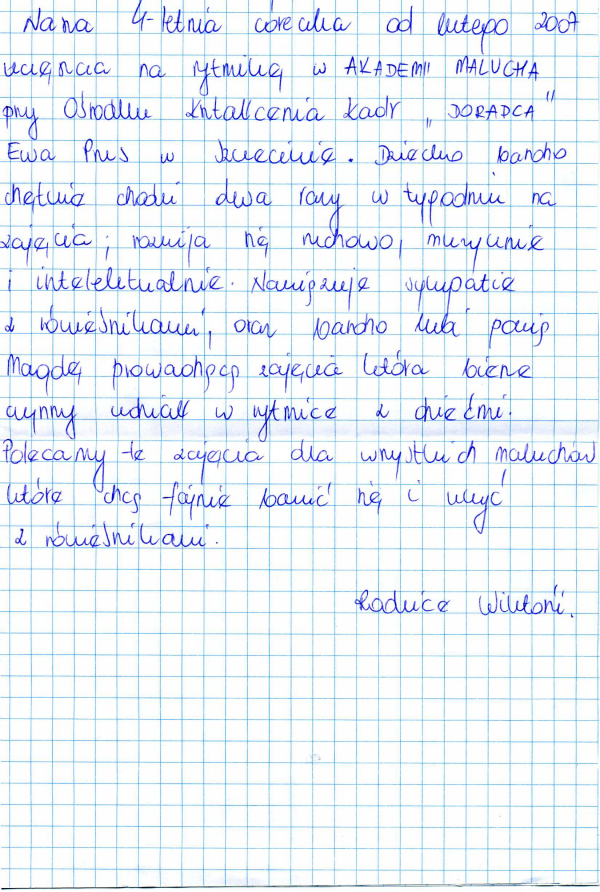 Nasza 4-letnia córeczka od lutego 2007
uczęszcza na rytmikę w AKADEMII MALUCHA
przy Ośrodku Kształcenia Kadr „DORADCA"
Ewa Prus w Szczecinie. Dziecko bardzo
chętnie chodzi dwa razy w tygodniu na
zajęcia; rozwija się ruchowo, muzycznie
i intelektualnie. Nawiązuje sympatie
z rówieśnikami, oraz bardzo lubi panią
Magdę prowadzącą zajęcia która bierze
czynny udział w rytmice z dziećmi.
Polecamy te zajęcia dla wszystkich maluchów
które chcą fajnie bawić się i uczyć
z rówieśnikami.
Rodzice Wiktorii.